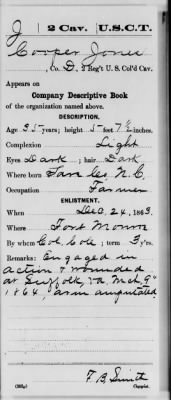 J 2 Cav. U.S.C.T.
Cooper Jones
, Co. D, 2 Reg't U. S. Col'd Cav.
Appears on
Company Descriptive Book
of the organization named above.
DESCRIPTION.
Age 35 years; height 5 feet 7 1/2 inches.
Complexion Light
Eyes Dark; hair Dark
Where born Co, N.C.
Occupation Farmer
ENLISTMENT.
When Dec. 24, 1863.
Where Fort Monroe
By whom Col. Cole; term 3 y'rs.
Remarks: Engaged in
action & wounded
at Suffolk, Va. Mch. 9"
1864, arm amputated
F. B. Smith
Copyist.